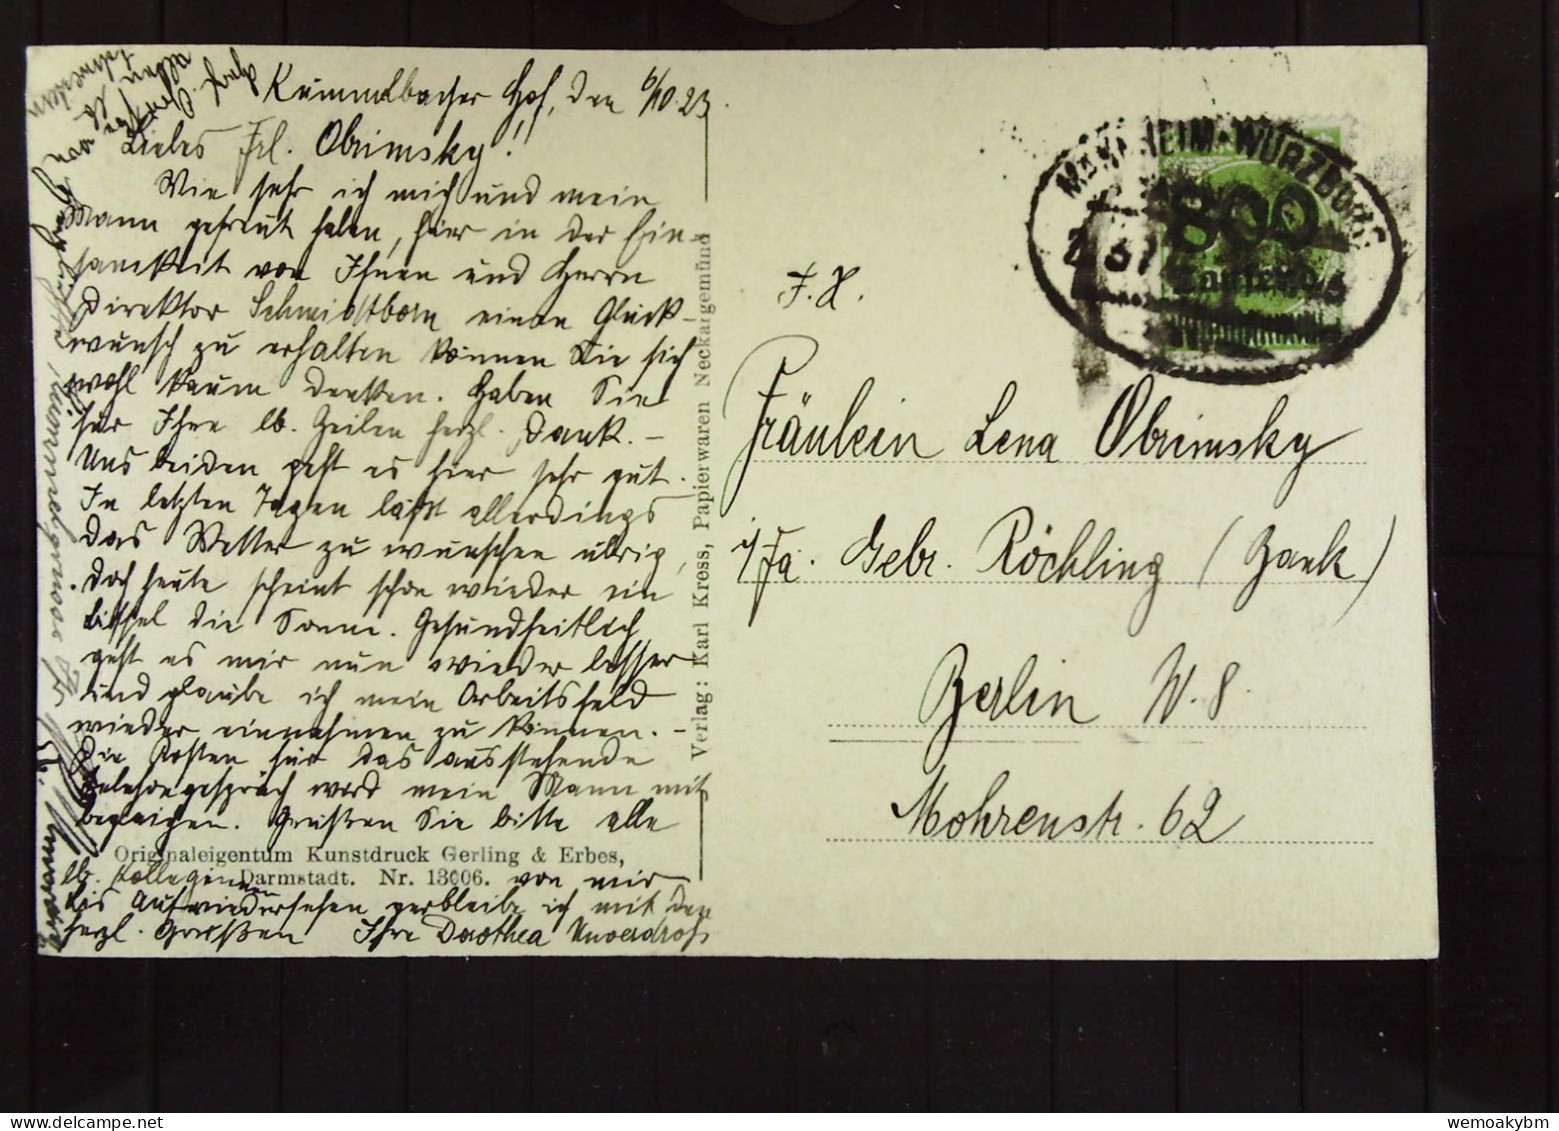 Kümmelbacher Hof, den 6/10.23.
Liebes Frl. Obrimsky!
Wie sehr ich mich und mein
Mann gefreut haben, hier in der Ein-
samkeit von Ihnen und Herrn
Direktor Schmidtborn einen Glück-
wunsch zu erhalten können Sie sich
wohl kaum denken. Haben Sie
für Ihre lb. Zeilen herzl. Dank. –
Uns beiden geht es hier sehr gut.
In letzten Tagen läßt allerdings
das Wetter zu wünschen übrig,
doch heute scheint schon wieder ein
bissel die Sonne. Gesundheitlich
geht es mir nun wieder besser
und glaube ich mein Arbeitsfeld
wieder einnehmen zu können. –
Die Kosten für das ausstehende
Telefongespräch wird mein Mann mit
begleichen. Grüßen Sie bitte alle
lb. Kolleginnen von mir,
bis Aufwiedersehen verbleibe ich mit den
herzl. Grüßen Ihre Dorothea
Originaleigentum Kunstdruck Gerling & Erbes,
Darmstadt. Nr. 13006.
Verlag: Karl Kress, Papierwaren Neckargemünd
MANNHEIM-WÜRZBURG
800
Tausend
F. H.
Fräulein Lena Obrimsky
i/Fa. Gebr. Röchling (Bank)
Berlin W. 8.
Mohrenstr. 62
wemoakybm